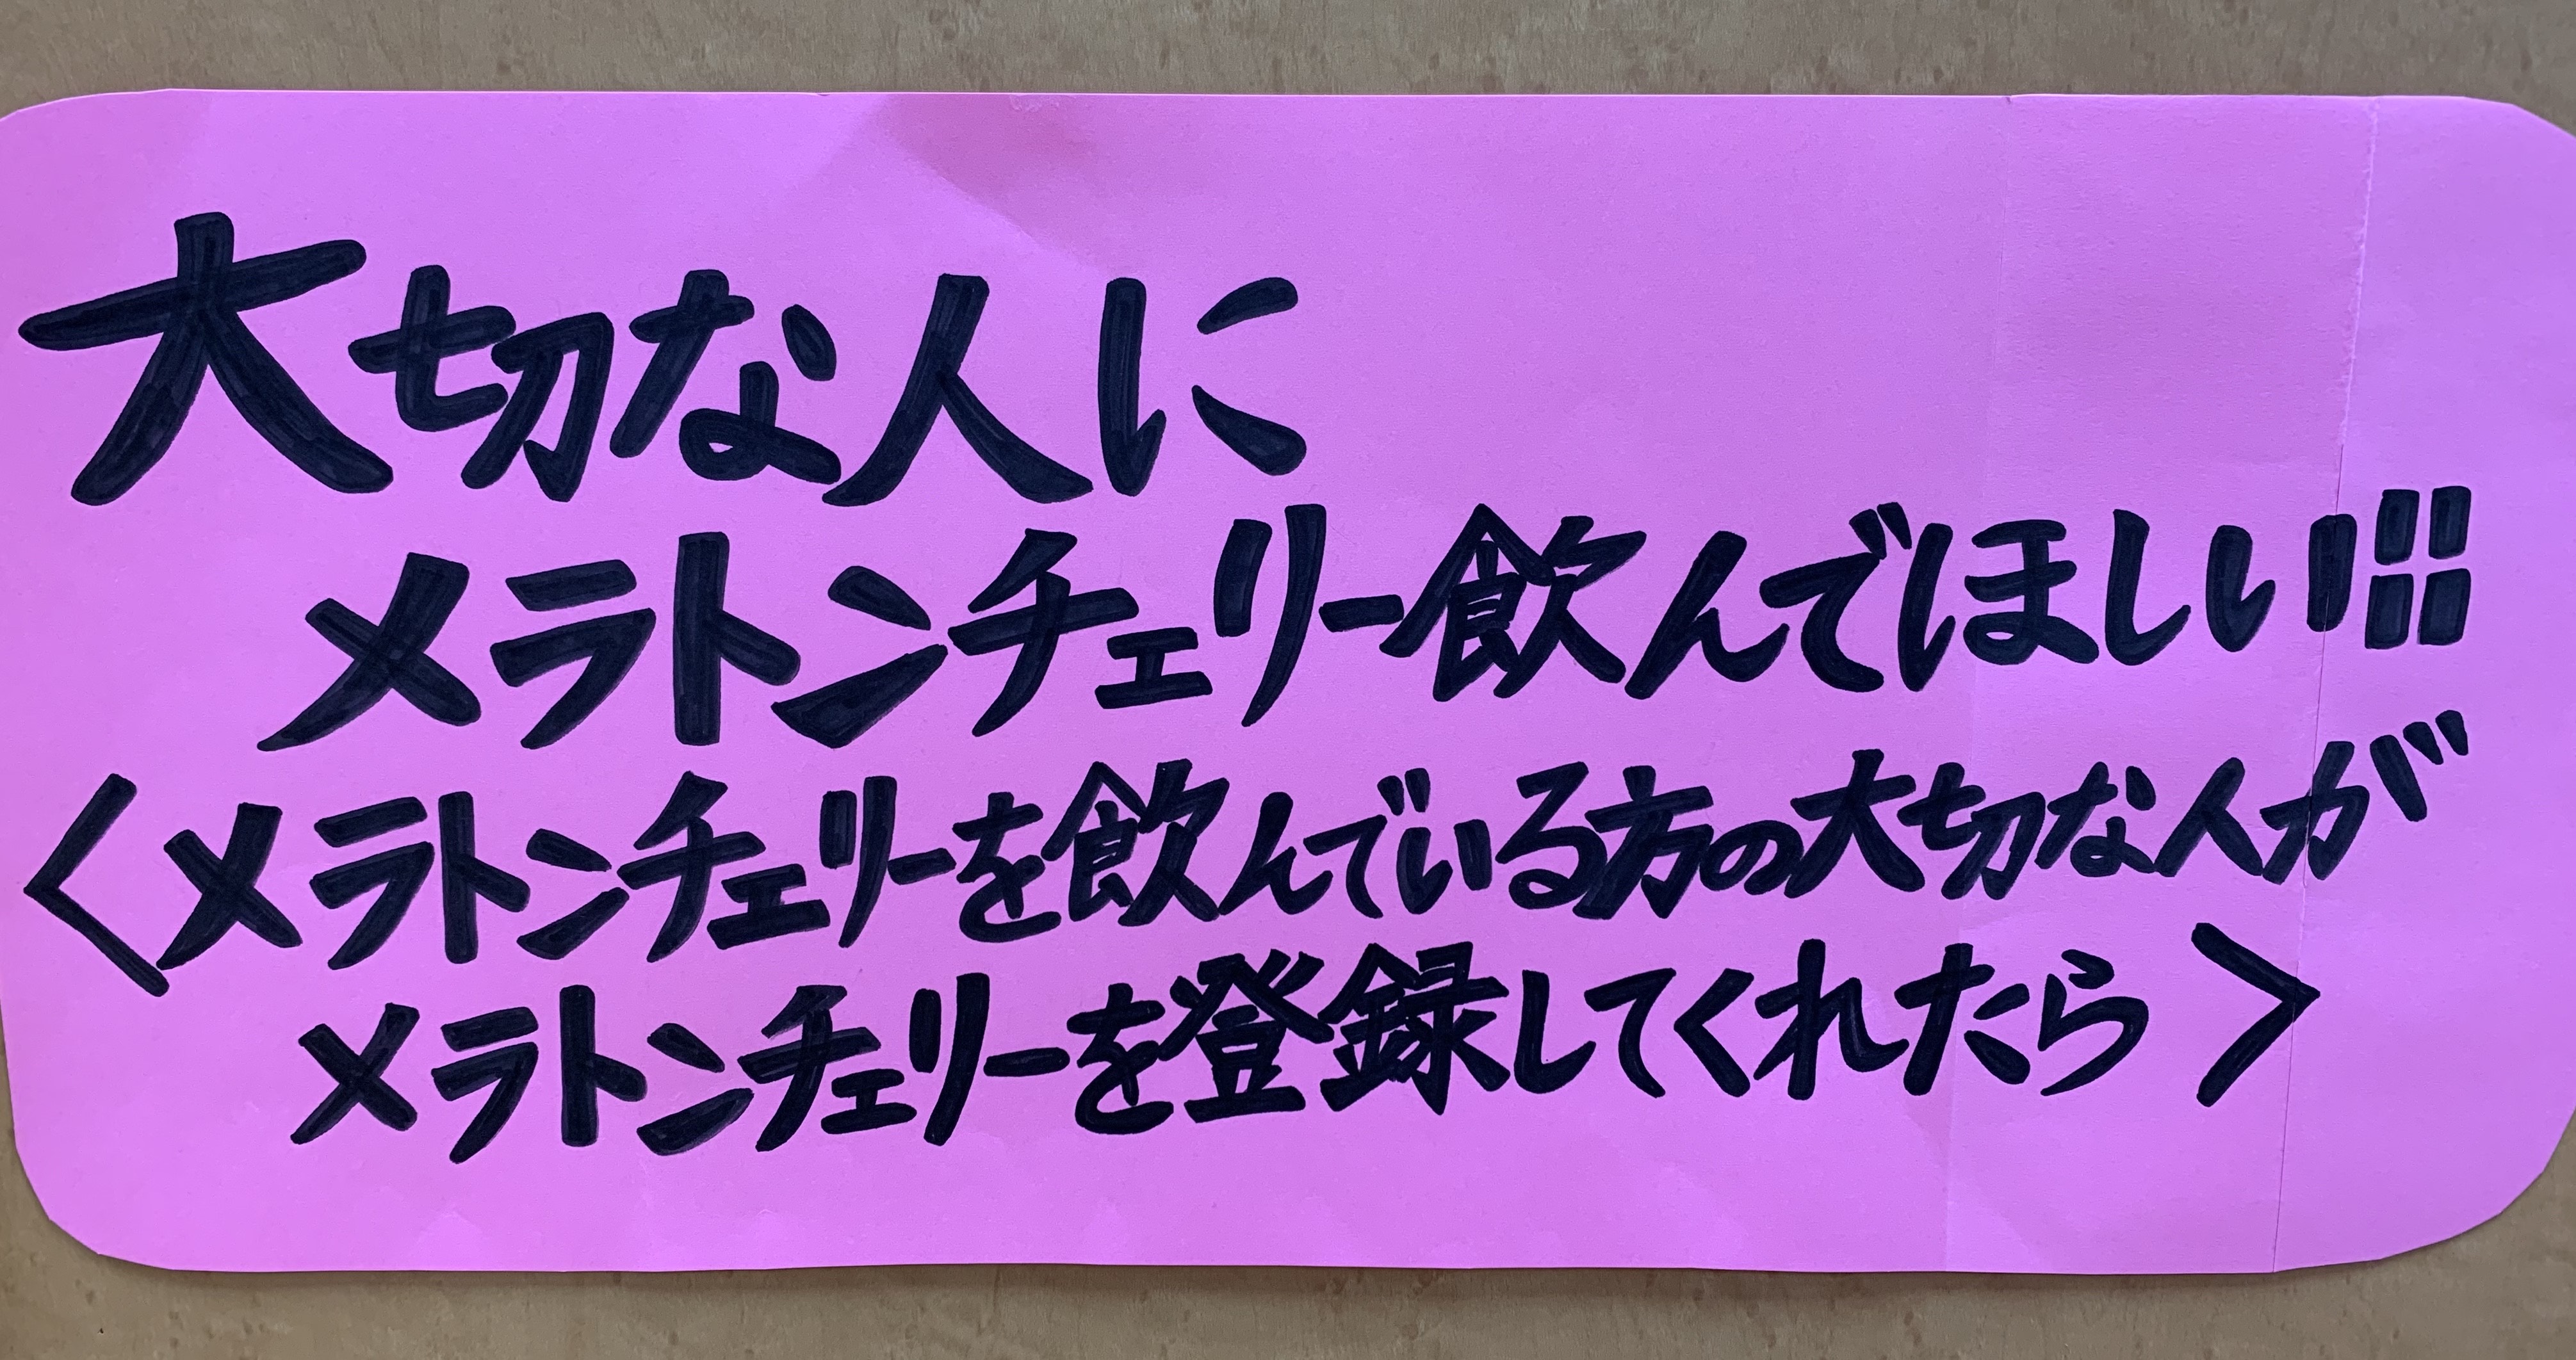 大切な人に
メラトンチェリー飲んでほしい!!!
〈メラトンチェリーを飲んでいる方の大切な人が
メラトンチェリーを登録してくれたら〉